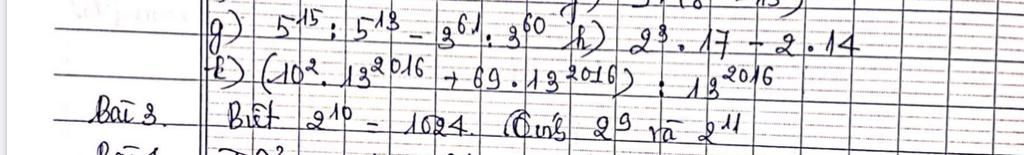 g) 5¹⁵ : 5¹³ - 3⁶¹ : 3⁶⁰ h) 2³ . 17 - 2 . 14
k) (10² . 13²⁰¹⁶ + 69 . 13²⁰¹⁶) : 13²⁰¹⁶
Bài 3. Biết 2¹⁰ = 1024. 2⁹ và 2¹¹